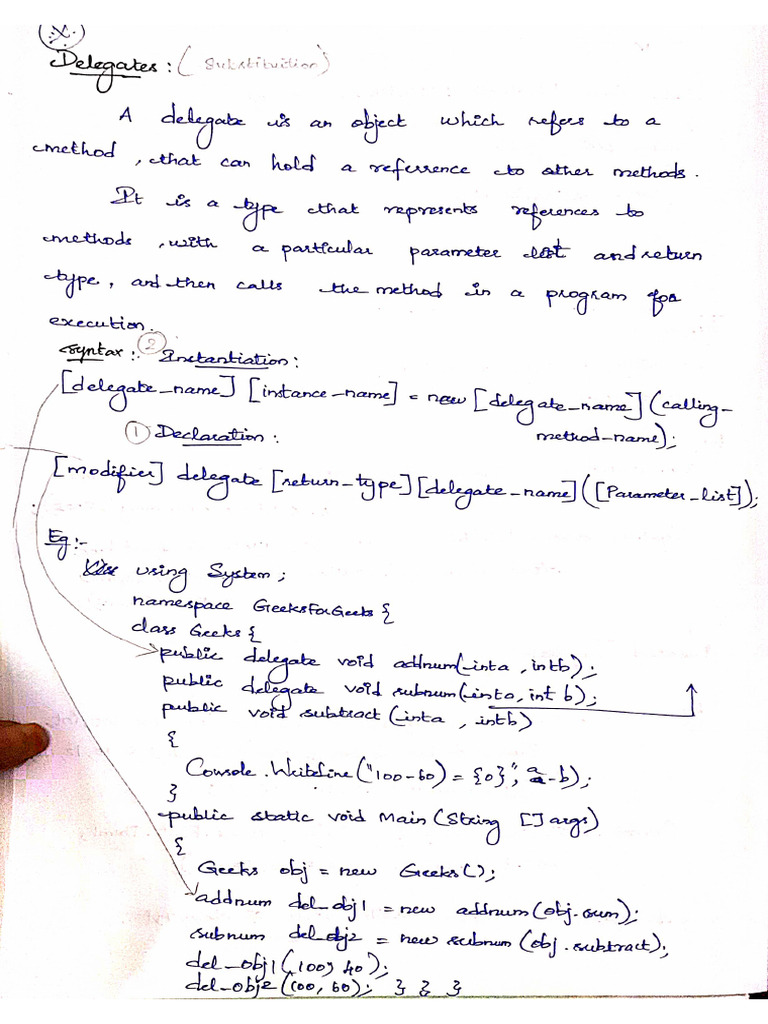 X.
Delegates : ( Substituition)
A delegate is an object which refers to a
method , that can hold a referrence to other methods.
It is a type that represents references to
methods , with a particular parameter list and return
type, and then calls the method in a program for
execution.
Syntax :- ② Instantiation :
[delegate_name] [instance_name] = new [delegate_name] (calling-
method-name);
① Declaration :
[modifier] delegate [return_type] [delegate_name] ([Parameter_list]);
Eg :-
using System ;
namespace GeeksForGeeks {
class Geeks {
public delegate void addnum(int a , int b);
public delegate void subnum(int a, int b);
public void subtract (int a , int b)
{
Console .WriteLine ("100-60) = {0}", a-b);
}
public static void Main (String [] args)
{
Geeks obj = new Geeks();
addnum del_obj1 = new addnum(obj.sum);
subnum del_obj2 = new subnum (obj .subtract);
del_obj1(100, 40);
del_obj2 (100, 60); } } }